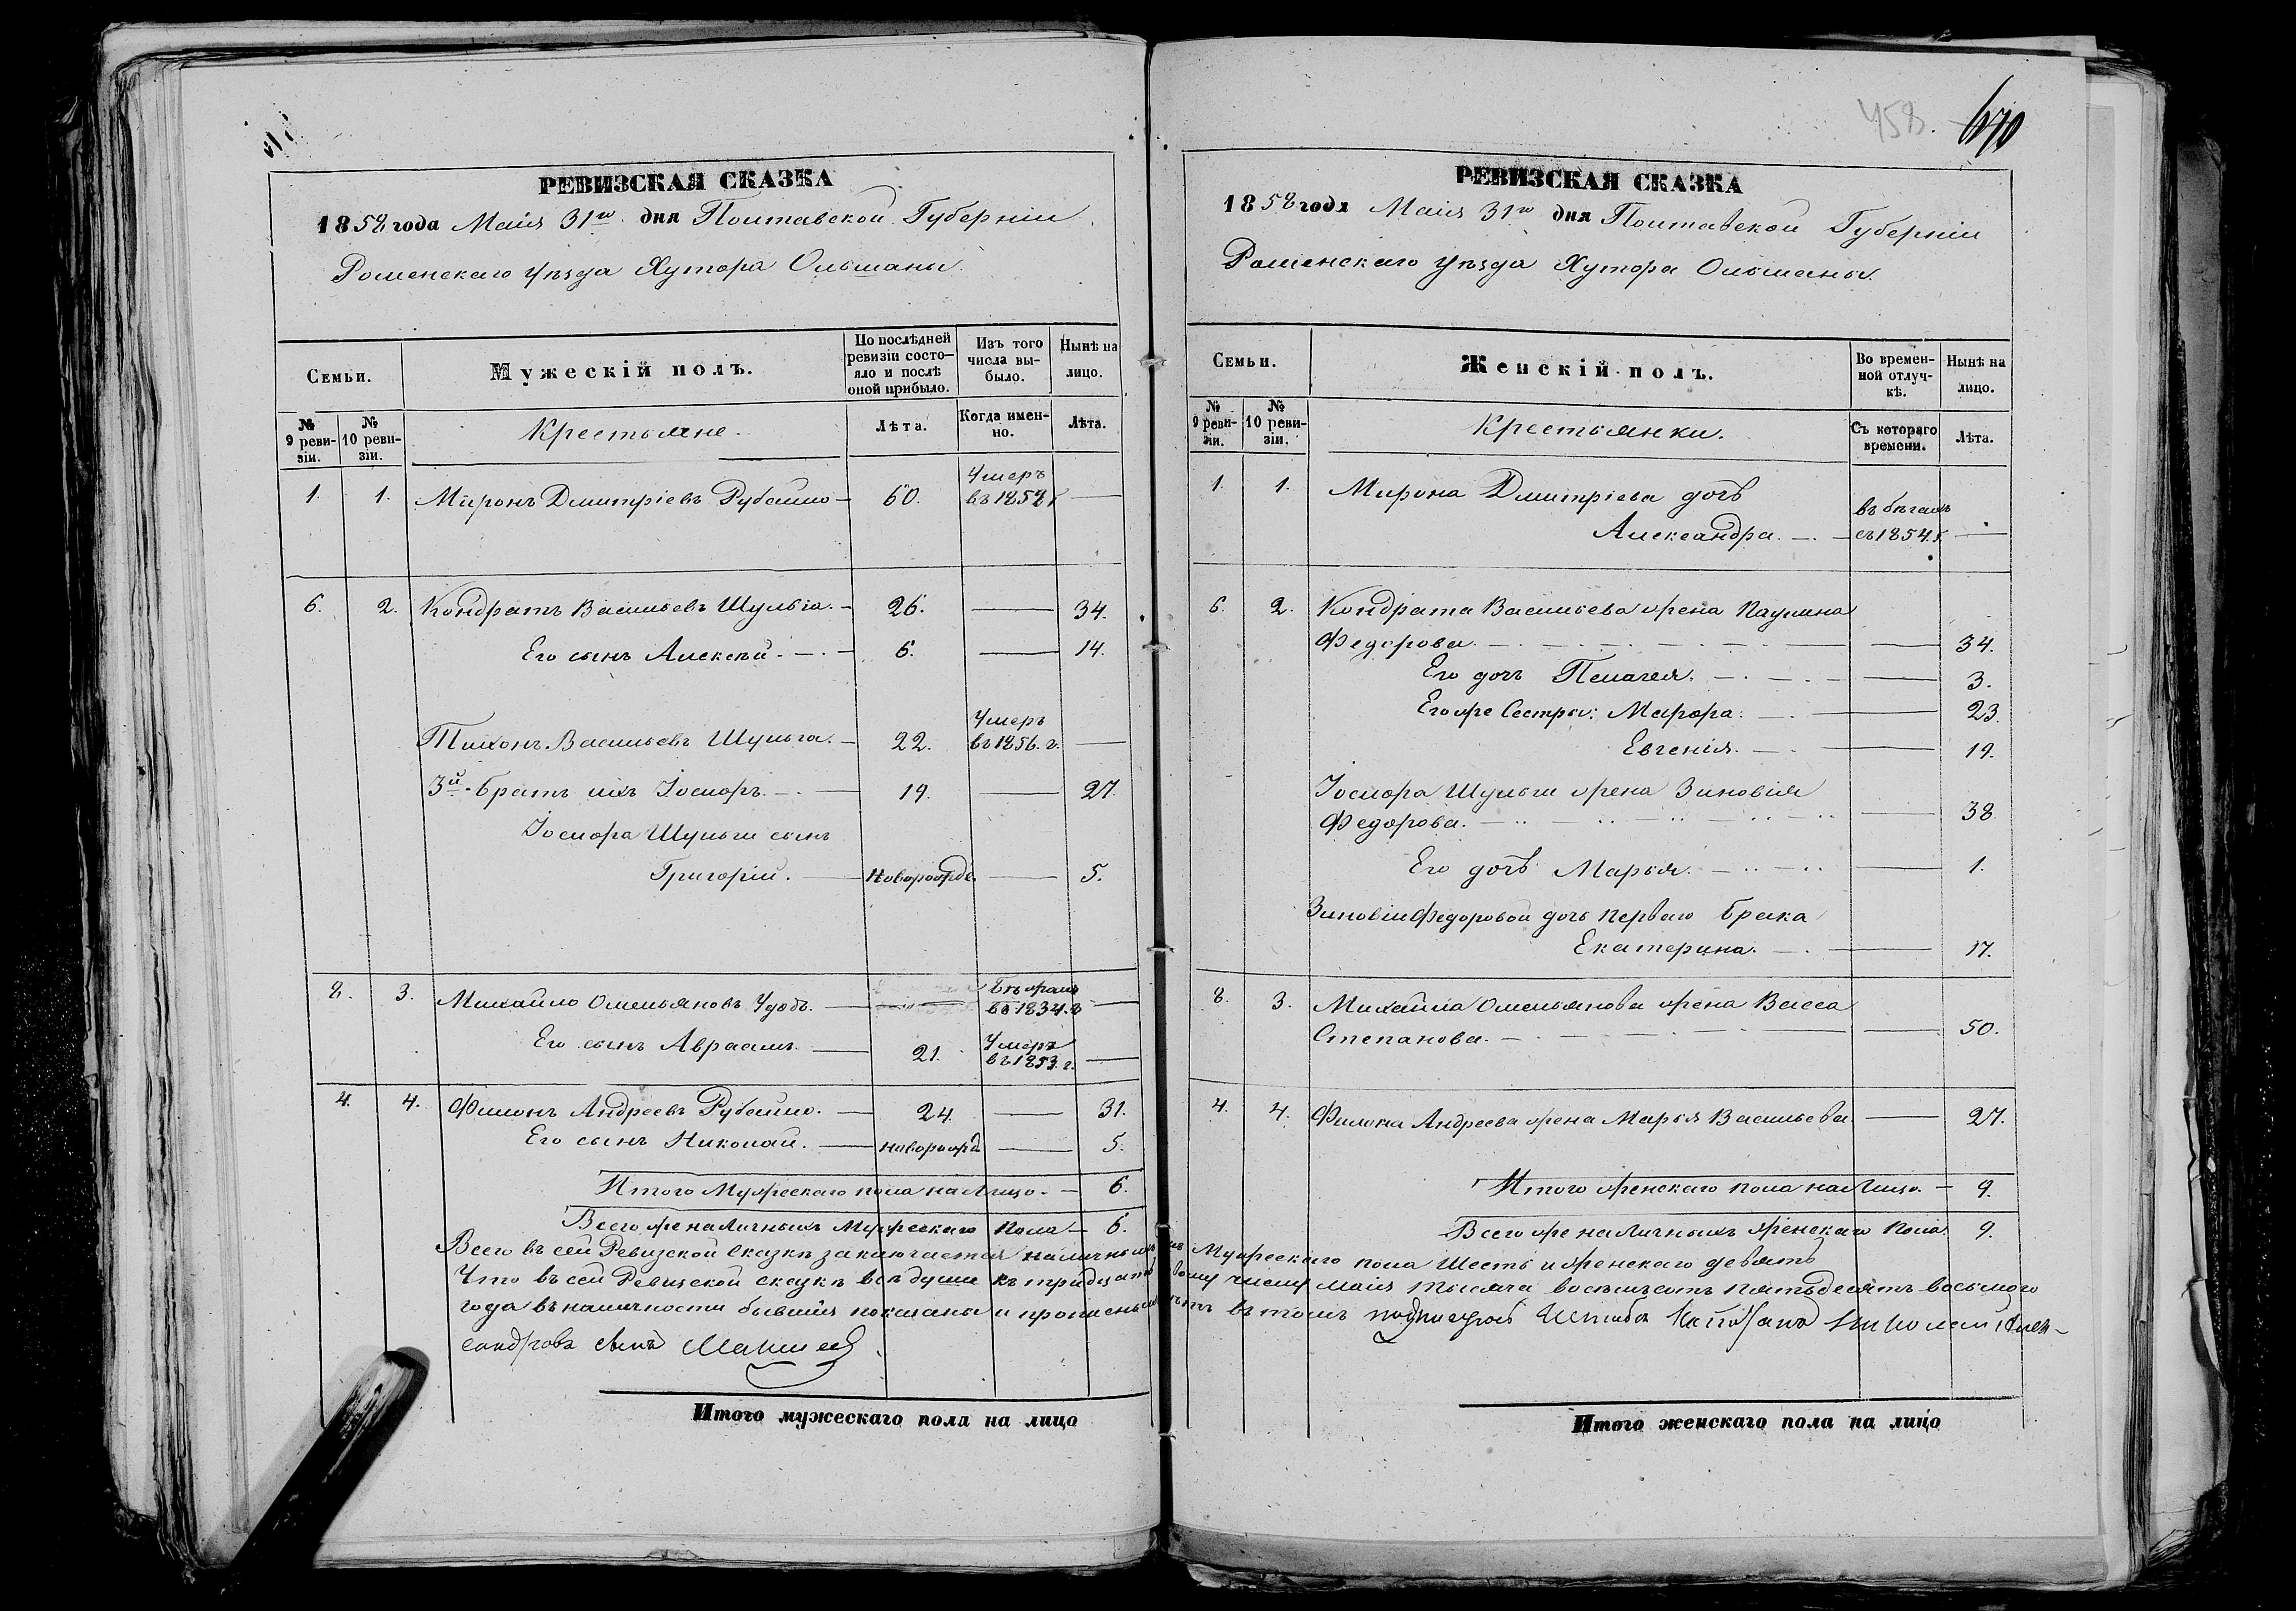 РЕВИЗСКАЯ СКАЗКА
1858 года Маія 31го дня Полтавской Губерніи
Роменскаго уѣзда Хутора Ольшаны.
Семьи.
Мужескій полъ.
По послѣдней ревизіи состо-
яло и послѣ оной прибыло.
Изъ того числа вы-
было.
Нынѣ на лицо.
№ 9 реви-
зіи.
№ 10 реви-
зіи.
Крестьяне.
Лѣта.
Когда имен-
но.
Лѣта.
1. 1. Миронъ Дмитріевъ Рубайло — 60. Умеръ въ 1858 г —
6. 2. Кондратъ Васильевъ Шульга. — 26. — 34.
Его сынъ Алексѣй. — 6. — 14.
Тихонъ Васильевъ Шульга. — 22. Умеръ въ 1856. г. —
3й братъ ихъ Іосифъ. — 19. — 27.
Іосифа Шульги сынъ
Григорій. — Новорожд. — 5.
8. 3. Михайло Омельяновъ Чубъ. — Бѣжалъ въ 1834. г —
Его сынъ Авраамъ. — 21. Умеръ въ 1853. г. —
4. 4. Филонъ Андреевъ Рубайло. — 24. — 31.
Его сынъ Николай. — новорожд — 5.
Итого Мужескаго пола на Лицо. — 6.
Всего же наличныхъ Мужескаго Пола — 6.
Итого мужескаго пола на лицо
458.
670
РЕВИЗСКАЯ СКАЗКА
1858 года Маія 31го дня Полтавской Губерніи
Роменскаго уѣзда Хутора Ольшаны.
Семьи.
Женскій полъ.
Во времен-
ной отлуч-
кѣ.
Нынѣ на лицо.
№ 9 реви-
зіи.
№ 10 реви-
зіи.
Крестьянки.
Съ котораго времени.
Лѣта.
1. 1. Мирона Дмитріева дочь
Александра. — въ бѣгахъ съ 1854. г. —
6. 2. Кондрата Васильева жена Паулина
Федорова. — 34.
Его дочь Пелагея. — 3.
Его же Сестры: Марфа. — 23.
Евгенія. — 19.
Іосифа Шульги жена Зиновія
Федорова. — 38
Его дочь Марья. — 1.
Зиновіи Федоровой дочь перваго брака
Екатерина. — 17.
8. 3. Михайла Омельянова жена Васса
Степанова. — 50.
4. 4. Филона Андреева жена Марья Васильева. — 27.
Итого женскаго пола на Лицо. — 9.
Всего же наличныхъ женскаго Пола. 9.
Всего въ сей Ревизской сказкѣ заключается наличныхъ Мужескаго пола Шесть и женскаго девять
Что въ сей Ревизской сказкѣ всѣ души къ тридцать числу маія тысяча восемьсотъ пятьдесятъ восьмого
года въ наличности бывшія показаны и въ томъ подписуюсь Штабсъ Капитанъ Николай Алек-
сандровъ сынъ
Итого женскаго пола на лицо